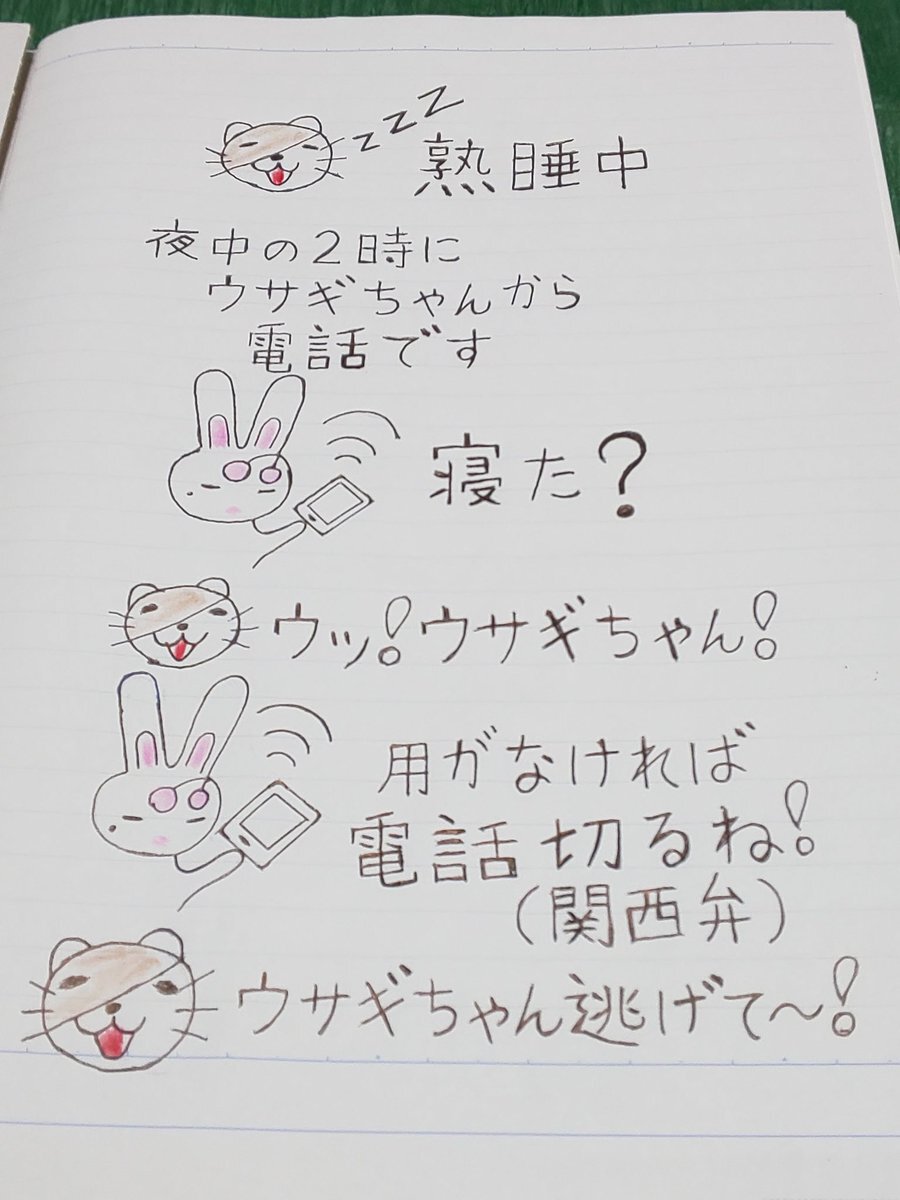 zzz 熟睡中
夜中の2時に
ウサギちゃんから
電話です
寝た?
ウッ!ウサギちゃん!
用がなければ
電話切るね!
(関西弁)
ウサギちゃん逃げて〜!